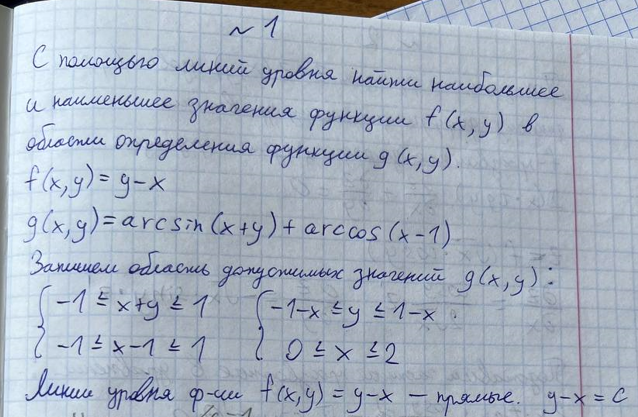 ~ 1
С помощью линий уровня найти наибольшее
и наименьшее значения функции f(x, y) в
области определения функции g(x, y).
f(x, y) = y - x
g(x, y) = arcsin(x+y) + arccos(x-1)
Запишем область допустимых значений g(x, y):
{ -1 ≤ x+y ≤ 1 { -1-x ≤ y ≤ 1-x
-1 ≤ x-1 ≤ 1 0 ≤ x ≤ 2
Линии уровня ф-ии f(x, y) = y-x — прямые. y-x = C